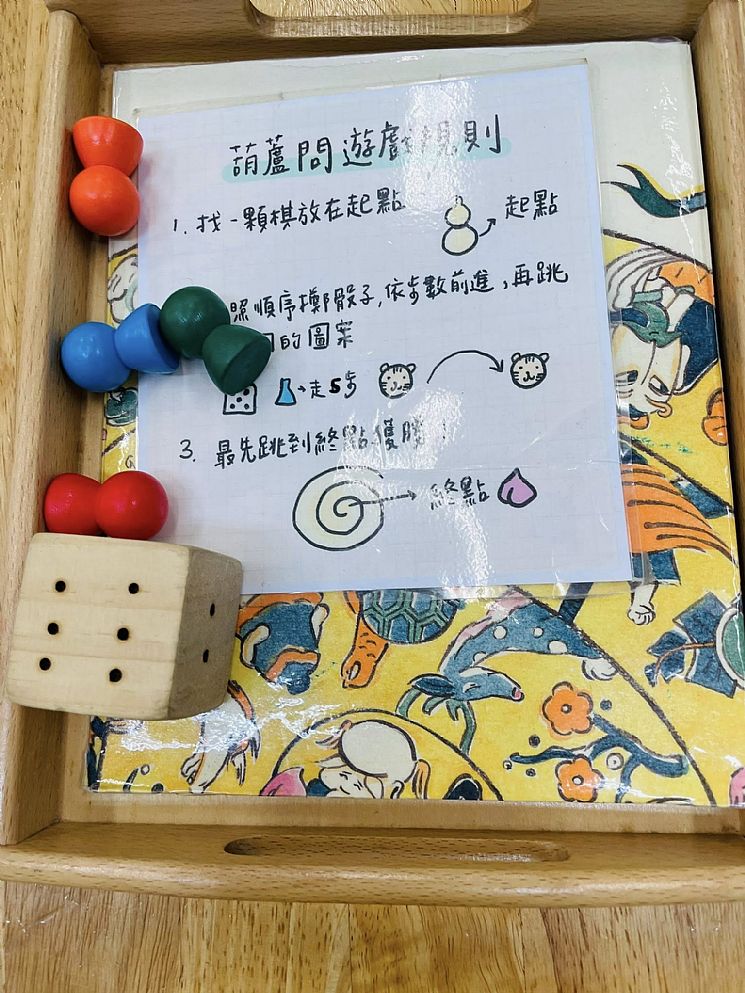 葫蘆問遊戲規則
1. 找一顆棋放在起點
起點
照順序擲骰子,依步數前進,再跳
的圖案
→走5步
3. 最先跳到終點獲勝!
終點